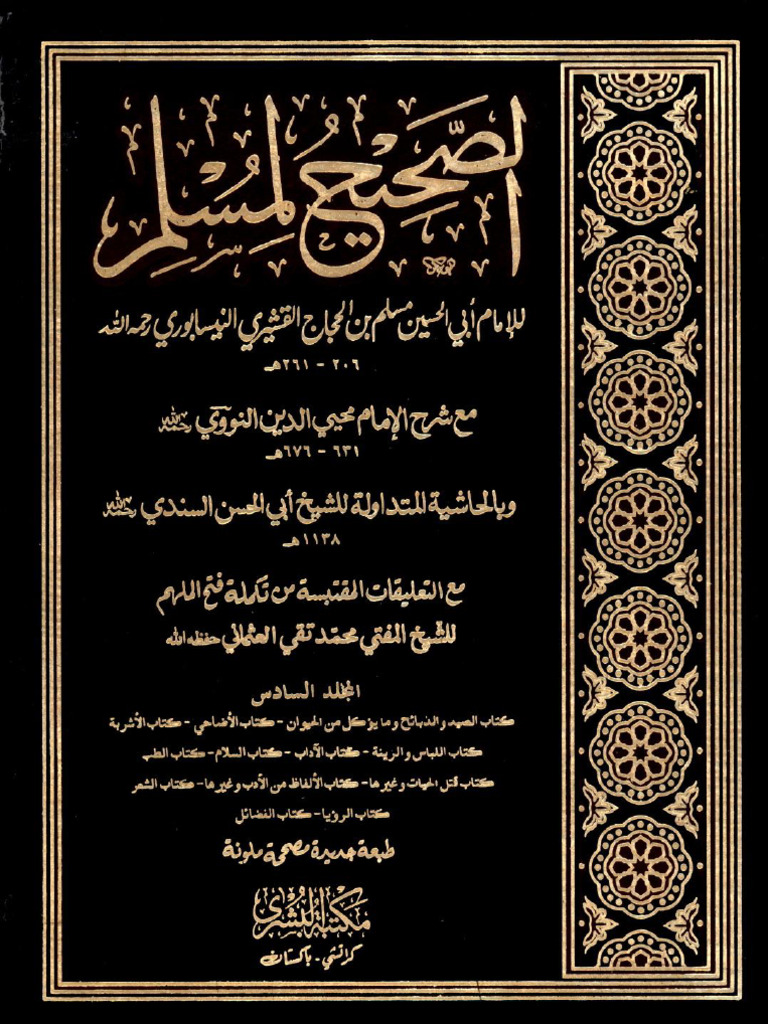 الصَّحِيْحُ لِمُسْلِمٍ
للإمام أبي الحسين مسلم بن الحجاج القشيري النيسابوري رحمه الله
٢٠٦ - ٢٦١هـ
مع شرح الإمام محيي الدين النووي رحمه الله
٦٣١ - ٦٧٦هـ
وبالحاشية المتداولة للشيخ أبي الحسن السندي رحمه الله
١١٣٨ هـ
مع التعليقات المقتبسة من تكملة فتح الملهم
للشيخ المفتي محمد تقي العثماني حفظه الله
المجلد السادس
كتاب الصيد والذبائح وما يؤكل من الحيوان - كتاب الأضاحي - كتاب الأشربة
كتاب اللباس والزينة - كتاب الآداب - كتاب السلام - كتاب الطب
كتاب قتل الحيات وغيرها - كتاب الألفاظ من الأدب وغيرها - كتاب الشعر
كتاب الرؤيا - كتاب الفضائل
طبعة جديدة مصححة ملونة
مكتبة البشرى
كراتشي - باكستان